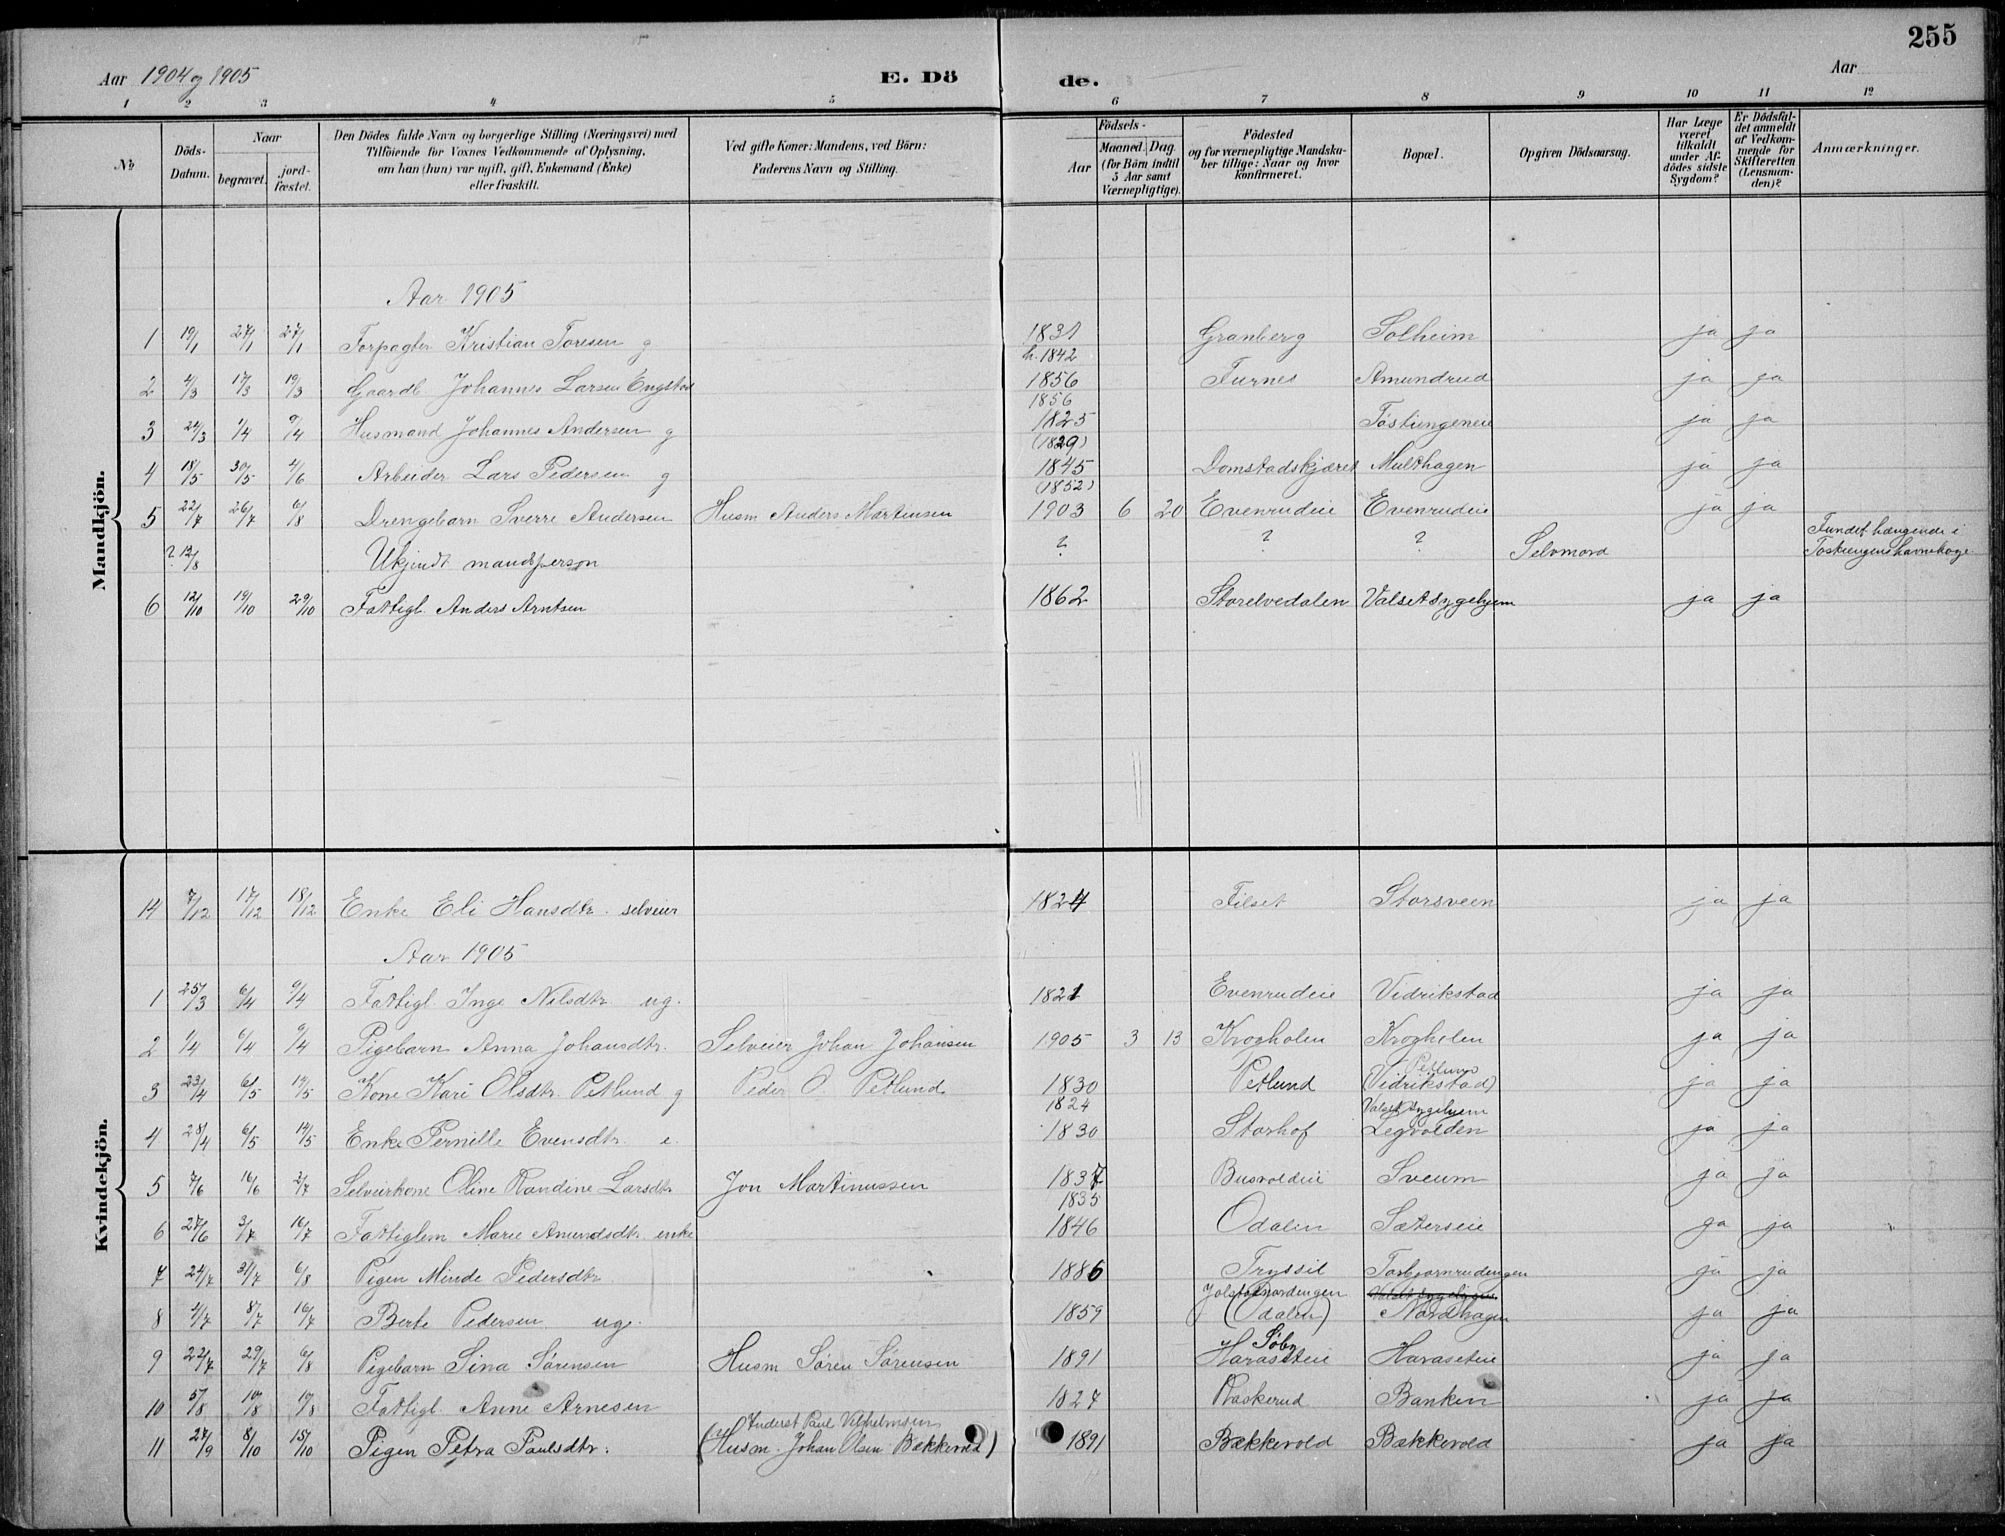 255
Aar 1904 og 1905 E. Dö de. Aar
1 2 3 4 5 6 7 8 9 10 11 12
No.
Döds-Datum.
Naar
begravet.
jord-fæstet.
Den Dödes fulde Navn og borgerlige Stilling (Næringsvei) med
Tilföiende for Voxnes Vedkommende af Oplysning,
om han (hun) var ugift, gift, Enkemand (Enke)
eller fraskilt.
Ved gifte Koner: Mandens, ved Börn:
Faderens Navn og Stilling.
Födsels-
Aar
Maaned. Dag.
(for Börn indtil
5 Aar samt
Værnepligtige).
Födested
og for værnepligtige Mandska-
ber tillige: Naar og hvor
konfirmeret.
Bopæl.
Opgiven Dödsaarsag.
Har Læge
været
tilkaldt
under Af-
dödes sidste
Sygdom?
Er Dödsfal-
det anmeldt
af Vedkom-
mende for
Skifteretten
(Lensman-
den)?
Anmærkninger.
Mandkjön.
Aar 1905
1 19/1 27/1 27/1 Forpagter Kristian Toresen g 1831 Granberg Solheim ja ja
h. 1842
2 4/3 17/3 19/3 Gaardb. Johannes Larsen Engstad 1856 Furnes Amundrud ja ja
1856
3 24/3 1/4 9/4 Husmand Johannes Andersen g 1825 Tostiengeneie ja ja
(1829)
4 18/5 30/5 4/6 Arbeider Lars Pedersen g 1845 Domstadskjæret Multhagen ja ja
(1852)
5 22/7 26/7 6/8 Drengebarn Sverre Andersen Husm Anders Martinsen 1903 6 20 Evenrudeie Evenrudeie ja ja
? 12/8 Ukjendt mandsperson ? ? ? Selvmord Fundet hængende i
Tostiengens havneskoge
6 12/10 19/10 29/10 Fattigl. Anders Arntsen 1862 Storelvedalen Valset Sygehjem ja ja
Kvindekjön.
14 7/12 17/12 18/12 Enke Eli Hansdtr. selveier 1824 Filset Storsveen ja ja
Aar 1905
1 25/3 6/4 9/4 Fattigl. Inge Nilsdtr ug. 1821 Evenrudeie Vidrikstad ja ja
2 1/4 6/4 9/4 Pigebarn Anna Johansdtr. Selveier Johan Johansen 1905 3 13 Krogholen Krogholen ja ja
Petlund
3 23/4 6/5 14/5 Kone Kari Olsdtr. Petlund g Peder O. Petlund 1830 Petlund (Vidrikstad) ja ja
1824 Valset sygehjem
4 28/4 6/5 14/5 Enke Pernille Evensdtr. e. 1830 Storhof Legvolden ja ja
5 7/6 16/6 2/7 Selveierkone Oline Randine Larsdtr Jon Martinussen 1837 Busvoldeie Sveum ja ja
1835
6 27/6 3/7 16/7 Fattiglem Marie Amundsdtr. enke 1846 Odalen Sæterseie ja ja
7 24/7 31/7 6/8 Pigen Minde Pedersdtr 1886 Tryssil Torbjørnrudengen ja ja
Valset Sygehjem
8 4/7 8/7 16/7 Berte Pedersen ug. 1859 (Odalen) Nordhagen ja ja
Søby
9 22/7 29/7 6/8 Pigebarn Sina Sørensen Husm Søren Sørensen 1891 Haraseteie Haraseteie ja ja
10 5/8 10/8 19/8 Fattigl. Anne Arnesen 1827 Raskerud Banken ja ja
Inderst Paul Vilhelmsen
11 27/9 8/10 15/10 Pigen Petra Paulsdtr. (Husm. Johan Olsen Bækkevold) 1891 Bækkevold Bækkevold ja ja